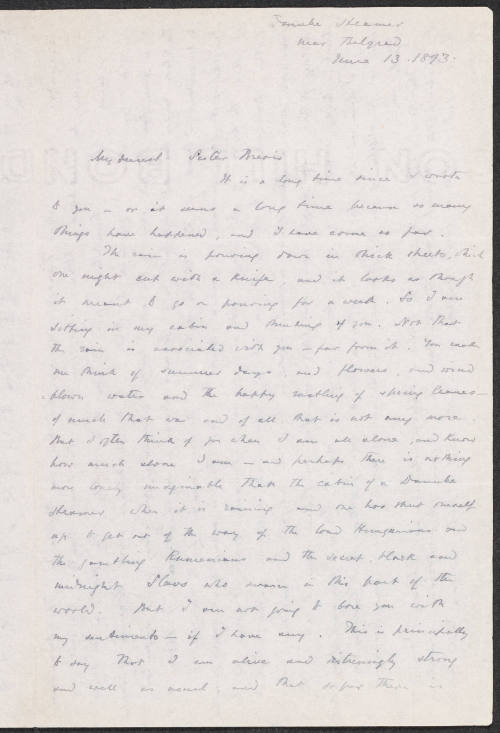 Danube Steamer
near Belgrad
June 13. 1893.
My dearest Sister
It is a long time since I wrote
to you – or it seems a long time because so many
things have happened, and I have come so far.
The rain is pouring down in thick sheets, which
one might cut with a knife, and it looks as though
it meant to go on pouring for a week. So I am
sitting in my cabin and thinking of you. Not that
the rain is associated with you – far from it. You make
me think of summer days and flowers, and wind
blown water and the happy rustling of spring leaves –
of much that was and of all that is not any more.
But I often think of you when I am all alone, and know
how much alone I am – and perhaps there is nothing
more lonely imaginable than the cabin of a Danube
steamer when it is raining and one has shut oneself
up to get out of the way of the loud Hungarians and
the gambling Rumanians and the secret, black and
midnight Slavs who swarm in this part of the
world. But I am not going to bore you with
my sentiments – if I have any. This is principally
to say that I am alive and distressingly strong
and well as usual, and that so far there is